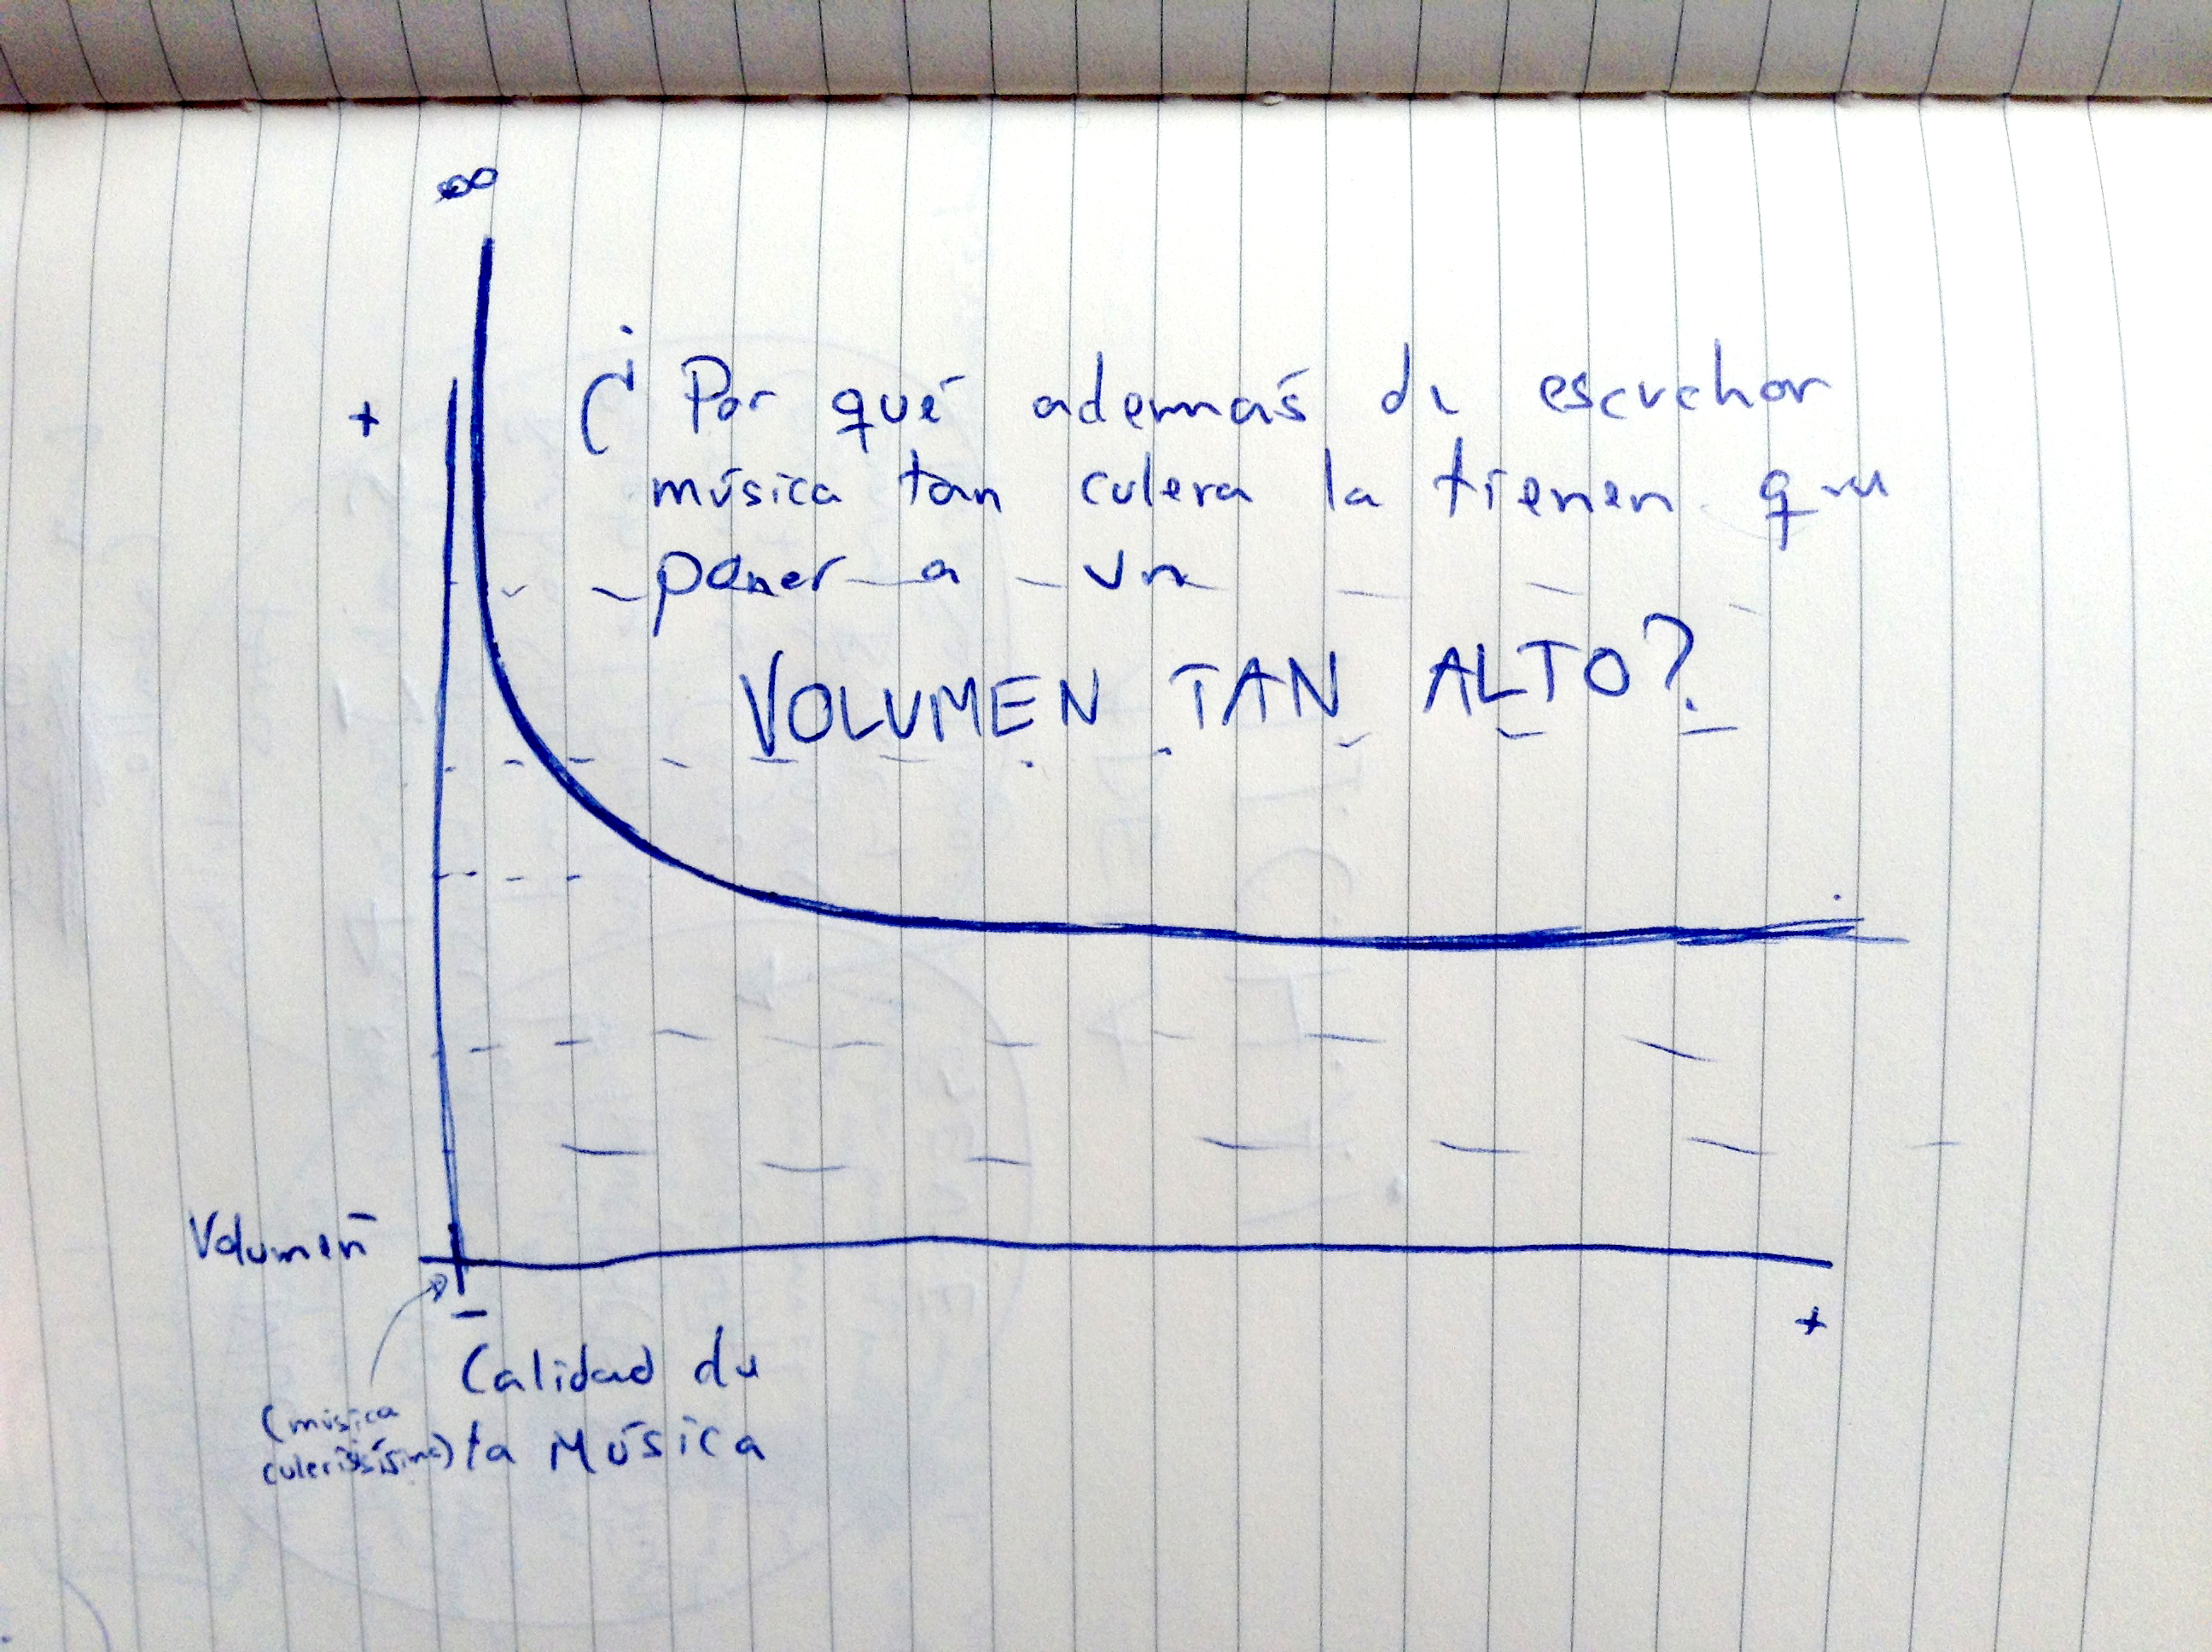 ∞
+
¿Por qué además de escuchar
música tan culera la tienen que
poner a un
VOLUMEN TAN ALTO?
Volumen -
-
+
Calidad de
la Música
(música
culerísísima)